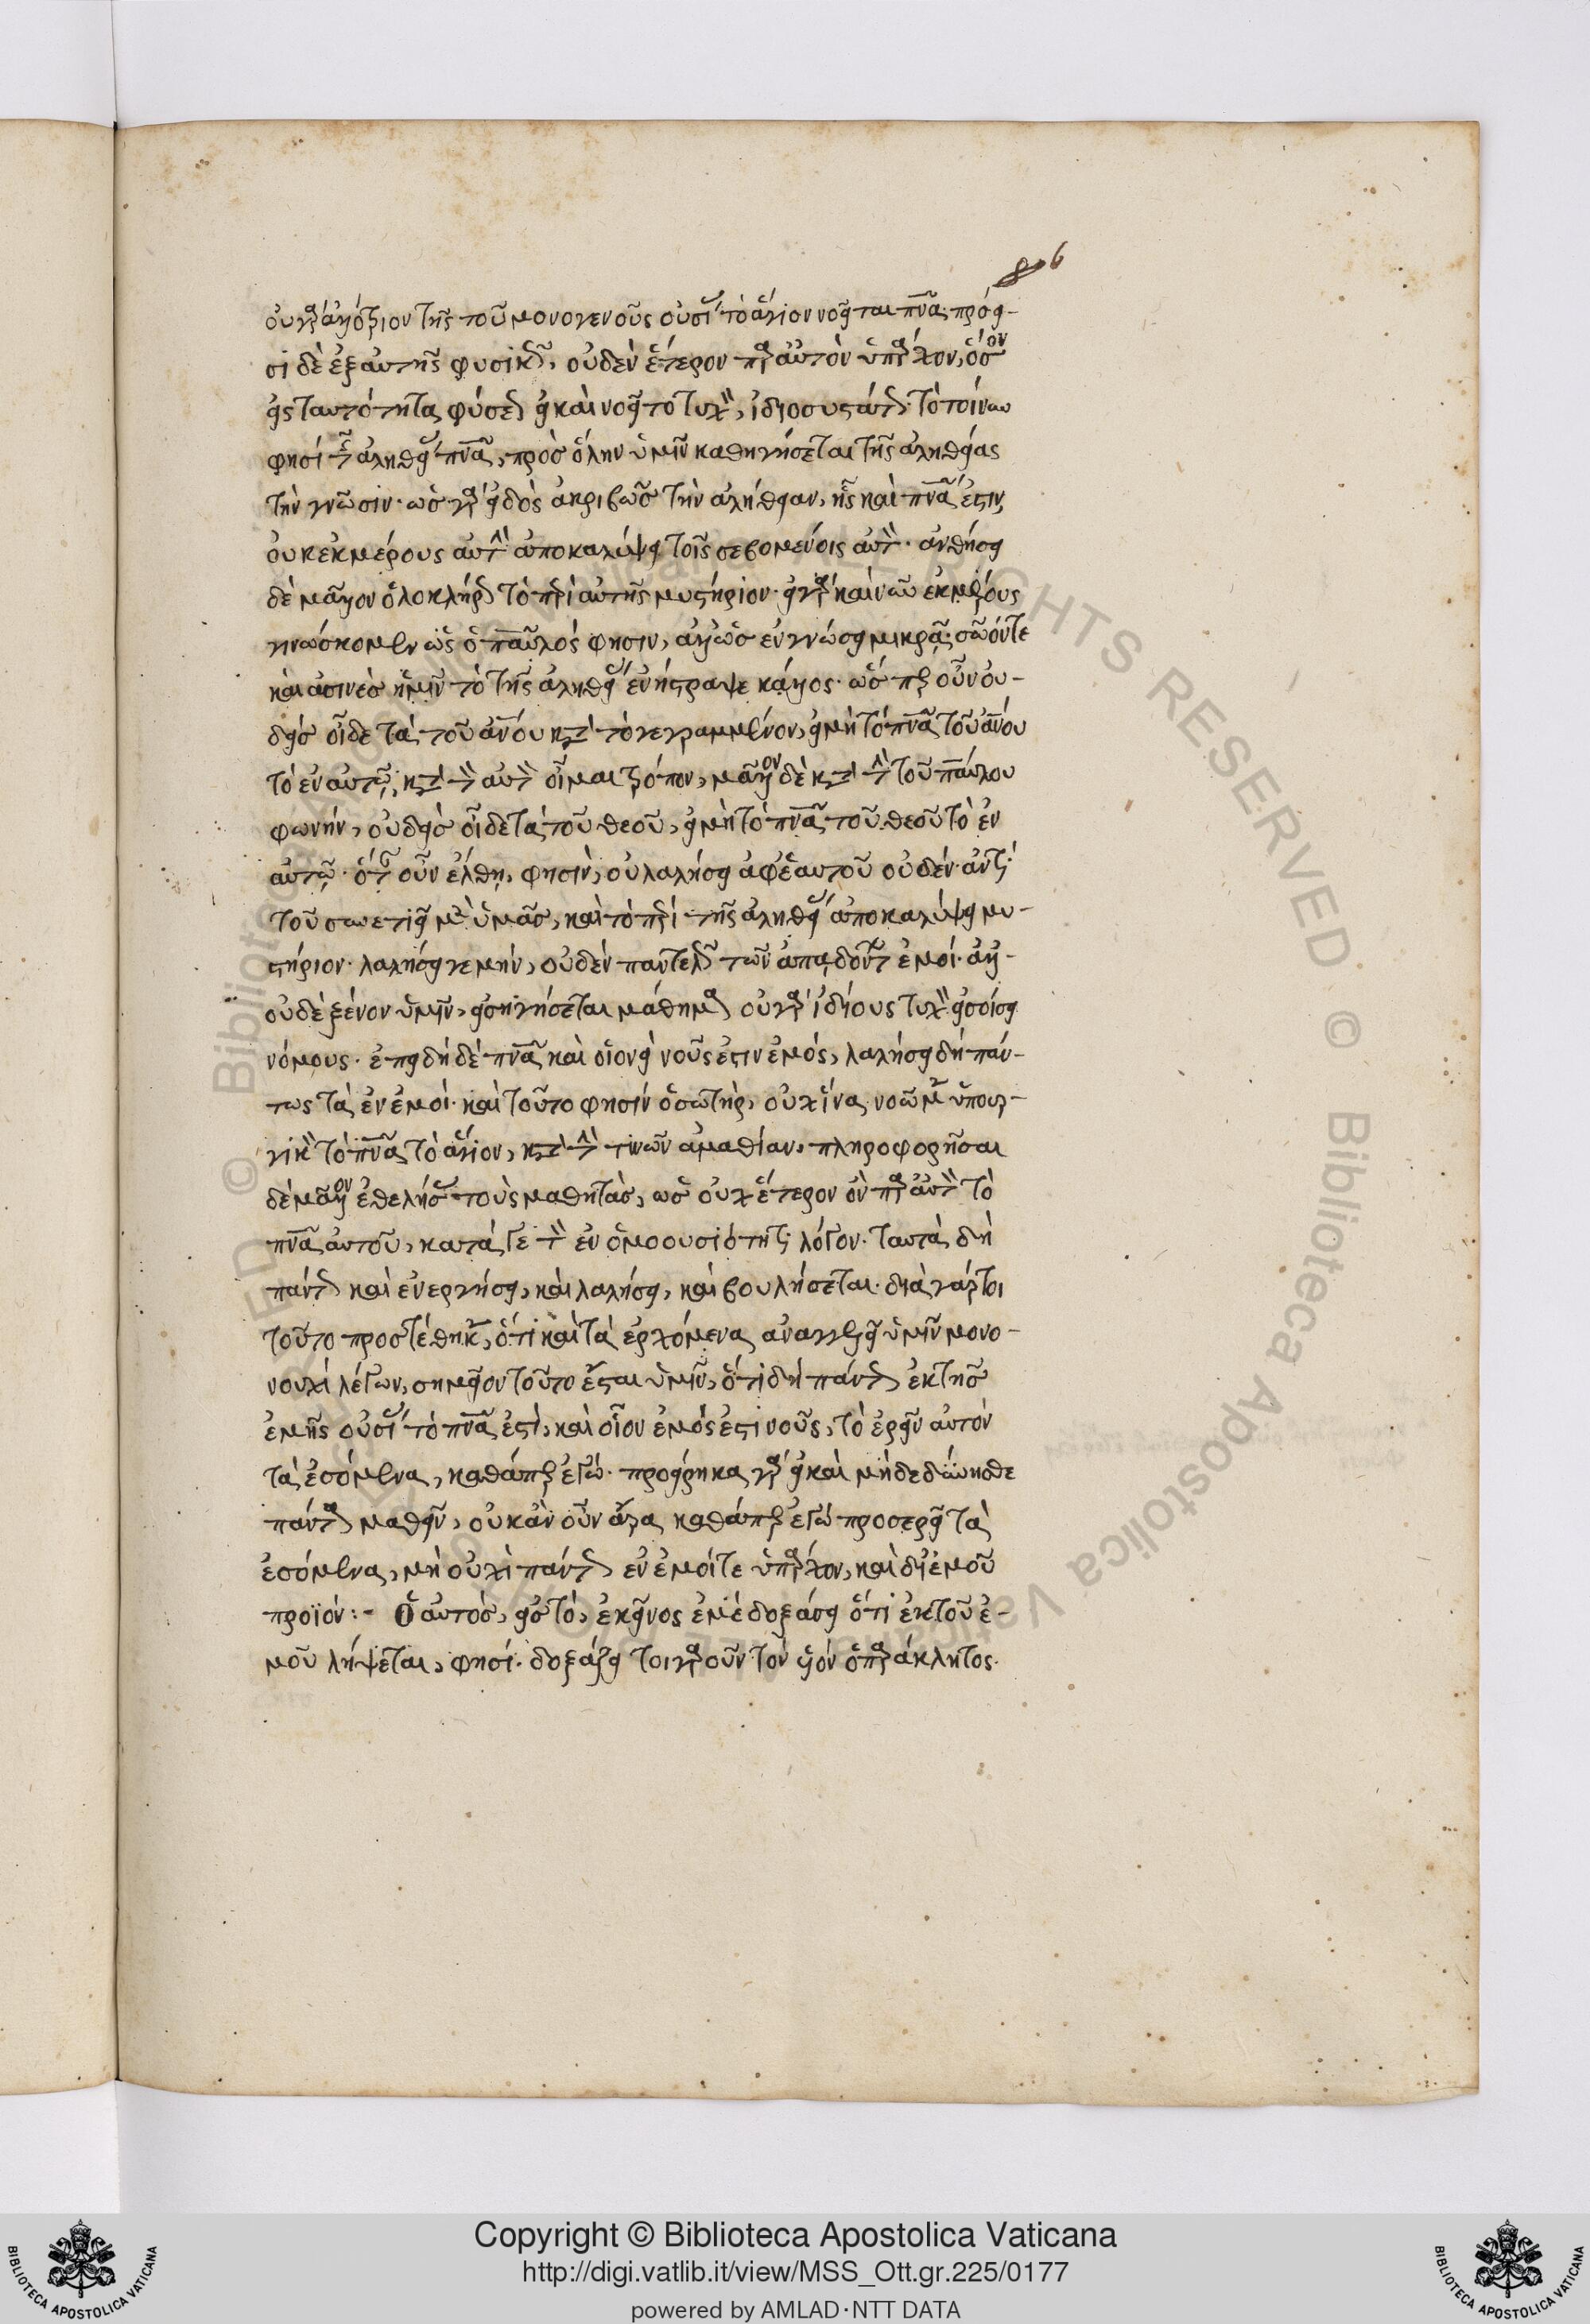 806
οὐ γὰρ ἀλλότριον τῆς τοῦ μονογενοῦς οὐσίας τὸ ἅγιον νοεῖται πνᾶ, πρόει-
σι δὲ ἐξ αὐτῆς φυσικῶς, οὐδὲν ἕτερον παρ αὐτὸν ὑπάρχον, ὅσον
εἰς ταυτότητα φύσεως εἰ καὶ νοεῖτό τυχὸν, ἰδιοσυστάτως. τὸ τοίνυν
φησὶ τῆς ἀληθείας πνᾶ, πρὸς ὅλην ὑμῖν καθηγήσεται τῆς ἀληθείας
τὴν γνῶσιν. ὡς γὰρ εἰδὸς ἀκριβῶς τὴν ἀλήθειαν, ἧς καὶ πνᾶ ἐστιν,
οὐκ ἐκ μέρους αὐτὴν ἀποκαλύψει τοῖς σεβομένοις αὐτὸν. ἀνθήσει
δὲ μᾶλλον ὁλοκλήρως τὸ περὶ αὐτῆς μυστήριον. εἰ γὰρ καὶ νῦν ἐκ μέρους
γινώσκομεν ὡς ὁ παῦλός φησιν, ἀλλ ὡς ἐν γνώσει μικρᾷ. σῶόν τε
καὶ ἀσινὲς ἡμῖν τὸ τῆς ἀληθείας ἐνήστραψε κάλλος. ὥσπερ οὖν οὐ-
δεὶς οἶδε τὰ τοῦ ἀνου κατὰ τὸ γεγραμμένον, εἰ μὴ τὸ πνᾶ τοῦ ἀνου
τὸ ἐν αὐτῷ, κατὰ τὸν αὐτὸν οἶμαι τρόπον, μᾶλλον δὲ κατὰ τὴν τοῦ παύλου
φωνήν, οὐδεὶς οἶδε τὰ τοῦ θεοῦ, εἰ μὴ τὸ πνᾶ τοῦ θεοῦ τὸ ἐν
αὐτῷ. ὅταν οὖν ἔλθῃ, φησὶν, οὐ λαλήσει ἀφ ἑαυτοῦ οὐδέν. ἀντὶ
τοῦ συνετιεῖ μὲν ὑμᾶς, καὶ τὸ περὶ τῆς ἀληθείας ἀποκαλύψει μυ-
στήριον. λαλήσει γεμὴν, οὐδὲν παντελῶς τῶν ἀπᾳδόντων ἐμοί. ἀλλ
οὐδὲ ξένον ὑμῖν, εἰσηγήσεται μάθημα οὐ γὰρ ἰδίους τυχὸν εἰσοίσει
νόμους. ἐπειδὴ δέ πνᾶ καὶ οἱονεὶ νοῦς ἐστιν ἐμός, λαλήσει δὴ πάν-
τως τὰ ἐν ἐμοί. καὶ τοῦτο φησὶν ὁ σωτὴρ, οὐχ ἵνα νοῶμεν ὑπουρ-
γικὸν τὸ πνᾶ τὸ ἅγιον, κατὰ τὴν τινῶν ἀμαθίαν, πληροφορῆσαι
δὲ μᾶλλον ἐθελήσας τοὺς μαθητὰς, ὡς οὐχ ἕτερον ὂν παρ αὐτὸν τὸ
πνᾶ αὐτοῦ, κατά γε τὸν ἐν ὁμοουσιότητι λόγον. ταυτὰ δὴ
πάντως καὶ ἐνεργήσει, καὶ λαλήσει, καὶ βουλήσεται. διὰ γάρτοι
τοῦτο προστέθηκεν, ὅτι καὶ τὰ ἐρχόμενα ἀναγγελεῖ ὑμῖν μονο-
νουχὶ λέγων, σημεῖον τοῦτο ἔσται ὑμῖν, ὅτι δὴ πάντως ἐκ τῆς
ἐμῆς οὐσίας τὸ πνᾶ ἐστὶ, καὶ οἷον ἐμός ἐστι νοῦς, τὸ ἐρεῖν αὐτὸν
τὰ ἐσόμενα, καθάπερ ἐγώ. προείρηκα γὰρ εἰ καὶ μὴ δεδύνησθε
πάντα μαθεῖν, οὐκ ἂν οὖν ἄρα καθάπερ ἐγὼ προσερεῖ τὰ
ἐσόμενα, μὴ οὐχὶ πάντως ἐν ἐμοί τε ὑπάρχον, καὶ δι ἐμοῦ
προϊόν:- Ὁ αὐτὸς, εἰς τὸ, ἐκεῖνος ἐμὲ δοξάσει ὅτι ἐκ τοῦ ἐ-
μοῦ λήψεται, φησί. δοξάζει τοιγαροῦν τὸν υἱὸν ὁ παράκλητος.
Copyright © Biblioteca Apostolica Vaticana
http://digi.vatlib.it/view/MSS_Ott.gr.225/0177
powered by AMLAD·NTT DATA